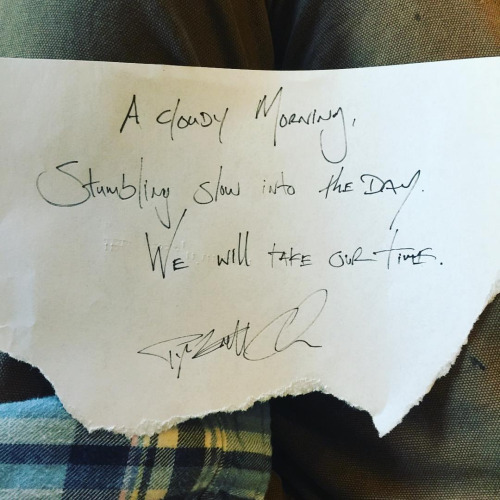 A Cloudy Morning,
Stumbling slow into the Day.
We will take our time.